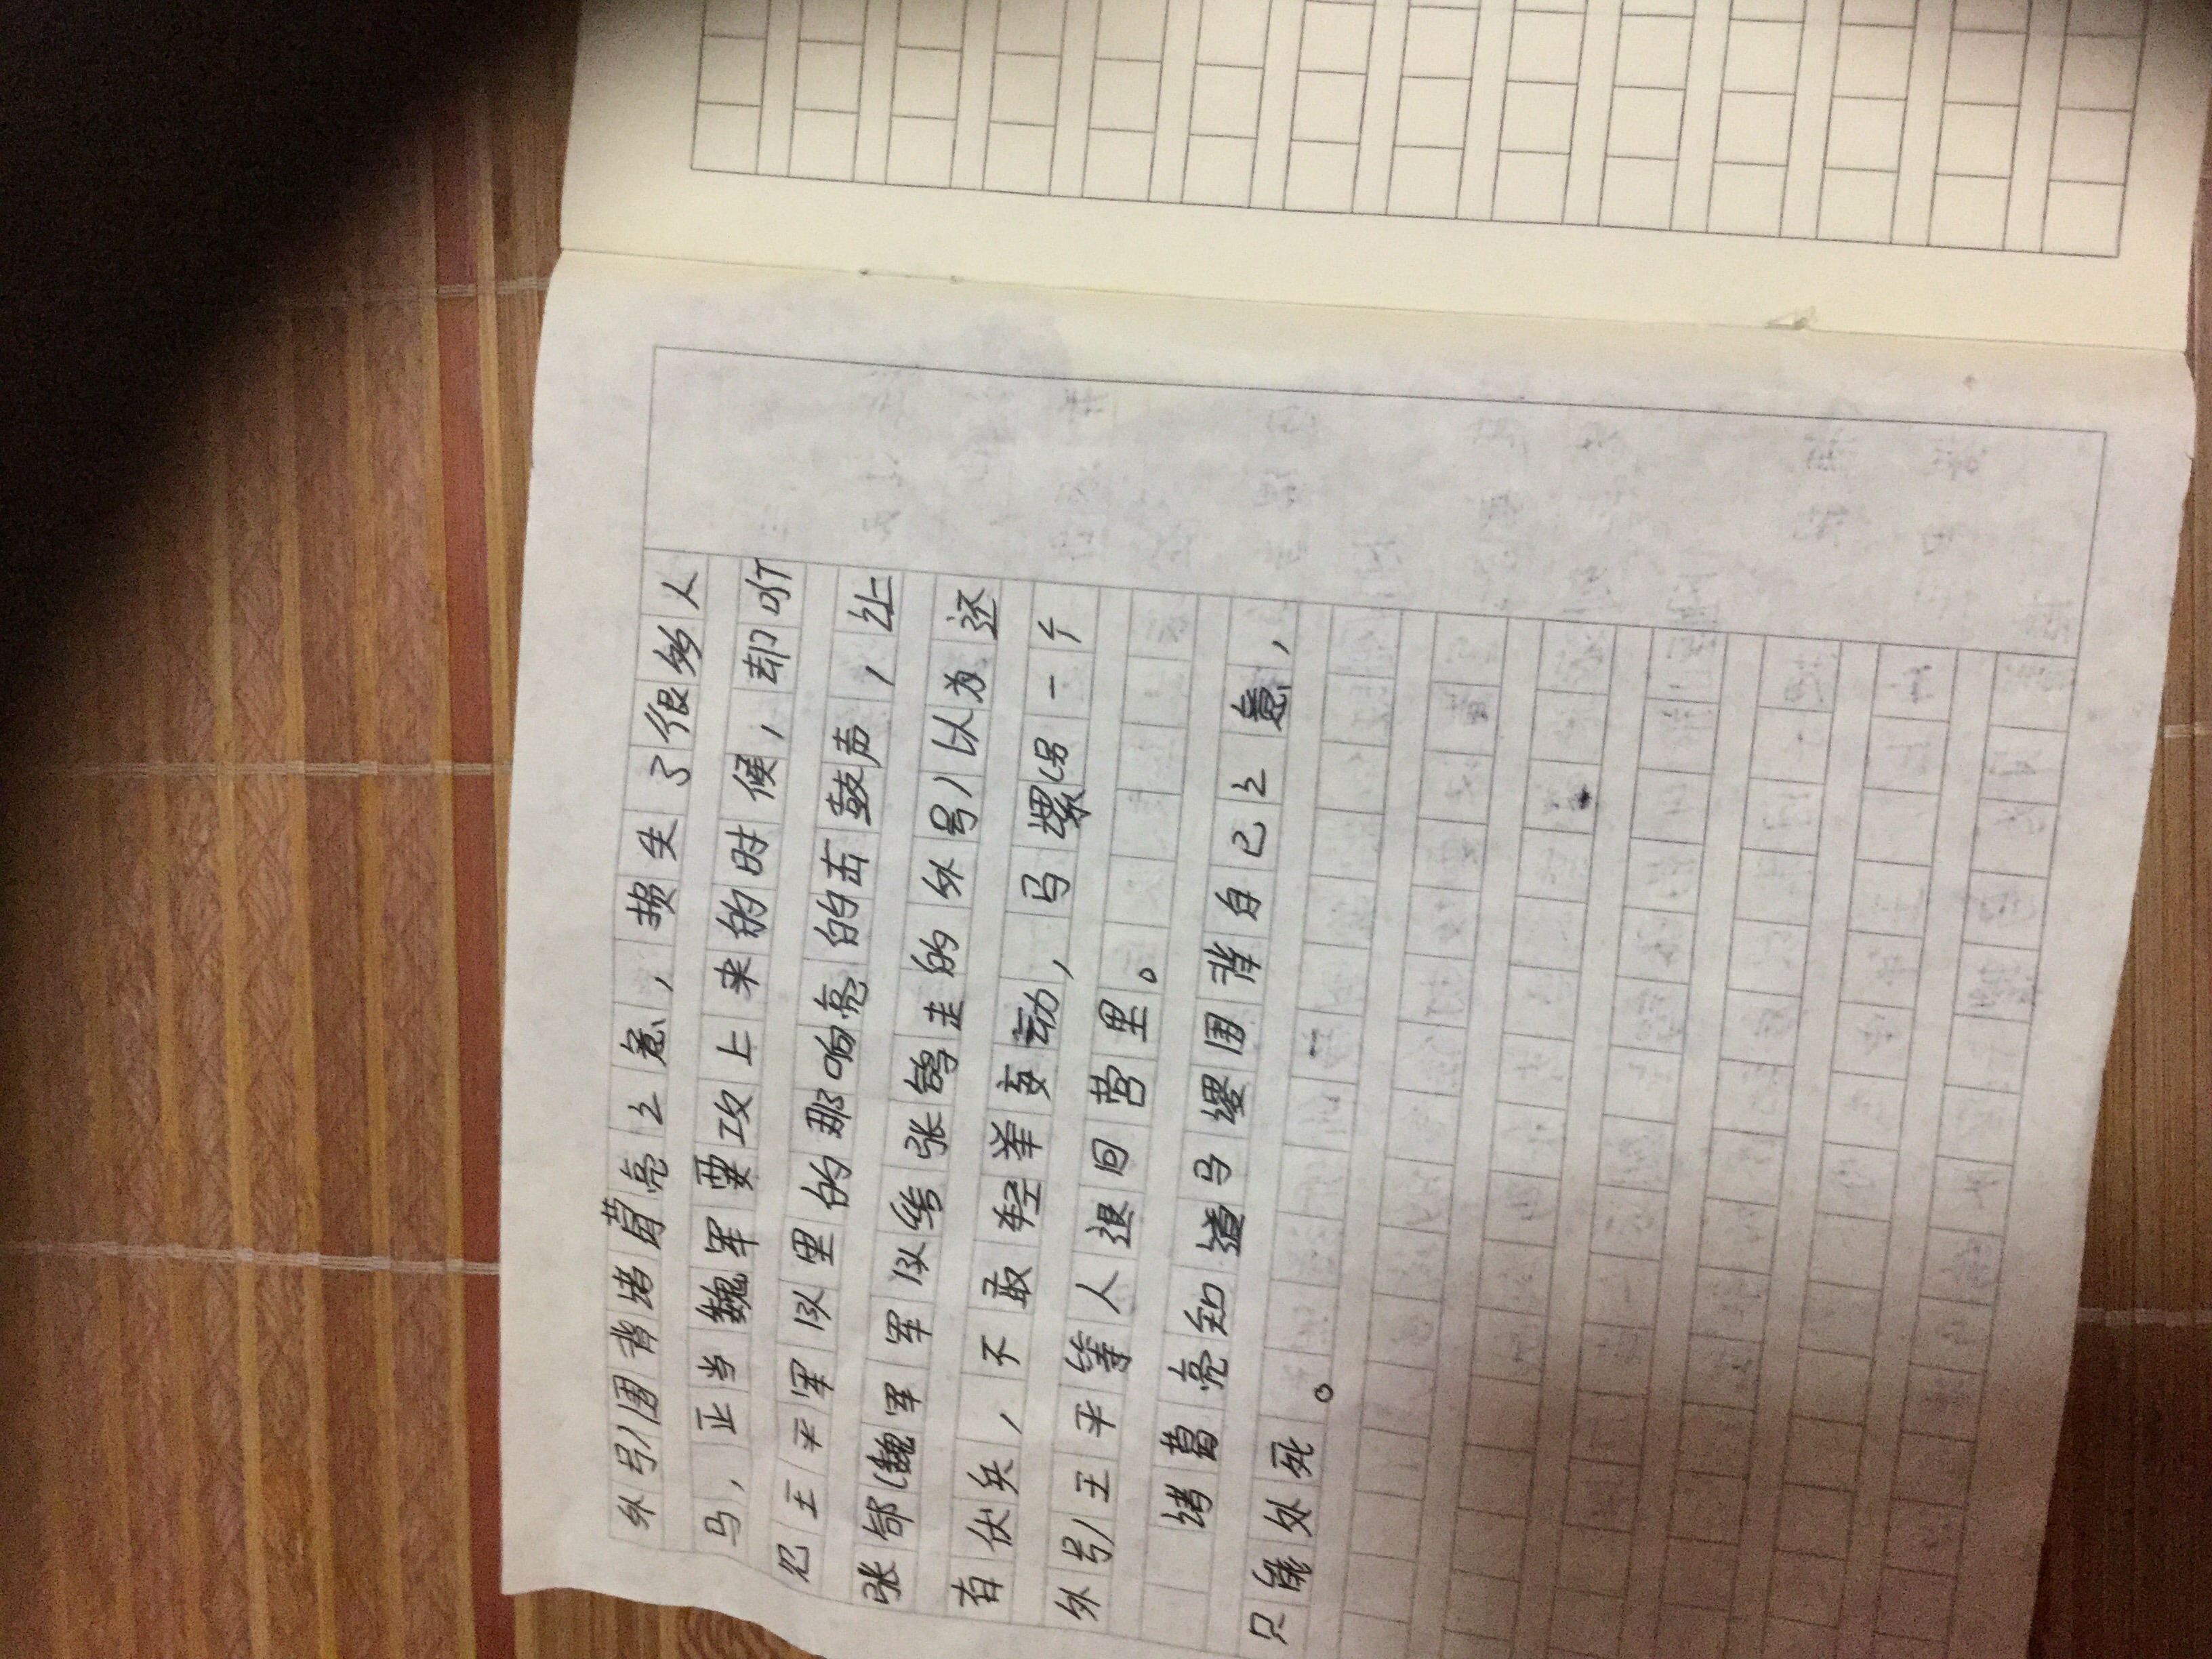 外号)围背诸葛亮之意，损失了很多人
马，正当魏军要攻上来的时候，却听
见王平军队里的那响亮的击鼓声，让
张郃(魏军军队统张鸽走的外号)以为还
有伏兵，不敢轻举妄动，马缧(另一个
外号)王平等人退回营里。
诸葛亮知道马缨围背自己之意，
只能处死。